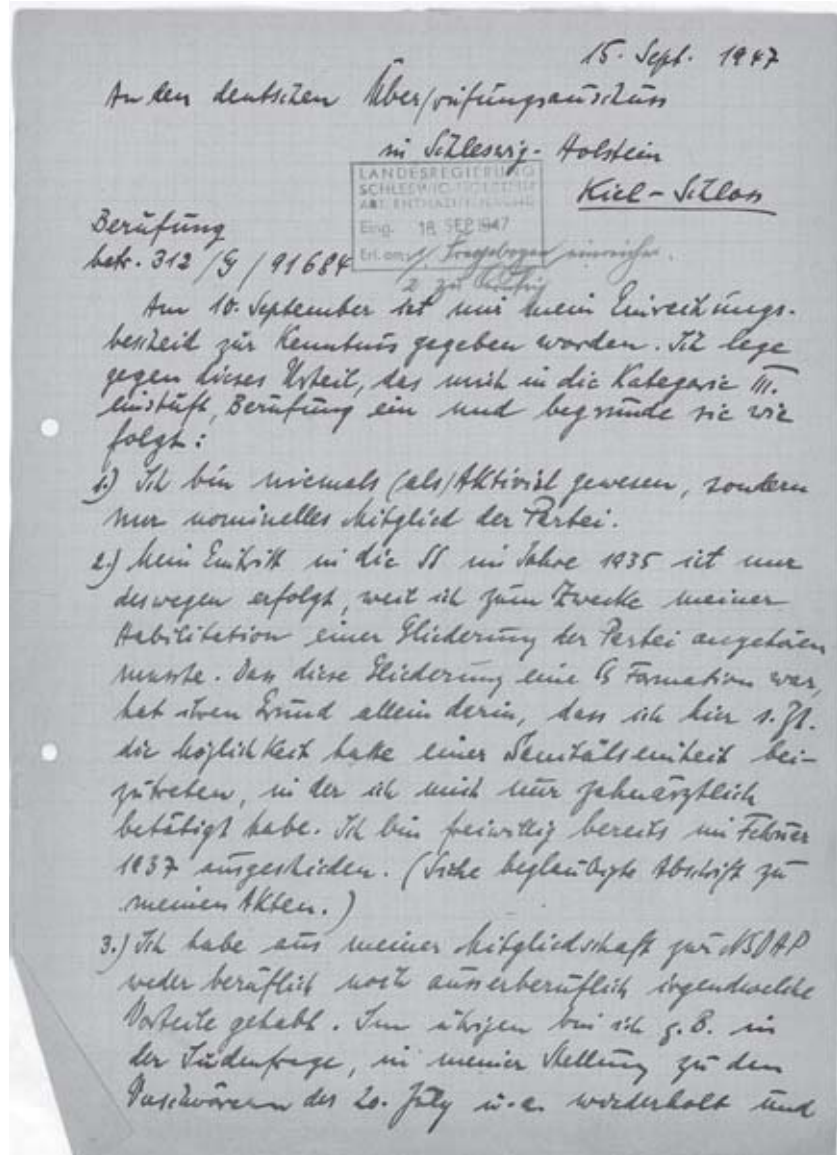 15. Sept. 1947
An den deutschen Überprüfungsausschuss
in Schleswig-Holstein
Kiel-Schloss
LANDESREGIERUNG
SCHLESWIG-HOLSTEIN
ABT. ENTNAZIFIZIERUNG
Eing. 18. SEP. 1947
Erl. am: 1. Fragebogen einreichen.
2. zu
Berufung
betr. 312/G/91684
Am 10. September ist mir mein Einreihungs-
bescheid zur Kenntnis gegeben worden. Ich lege
gegen dieses Urteil, das mich in die Kategorie III.
einstuft, Berufung ein und begründe sie wie
folgt:
1.) Ich bin niemals (als) Aktivist gewesen, sondern
nur nominelles Mitglied der Partei.
2.) Mein Eintritt in die SS im Jahre 1935 ist nur
deswegen erfolgt, weil ich zum Zwecke meiner
Habilitation einer Gliederung der Partei angehören
musste. Dass diese Gliederung eine SS Formation war,
hat ihren Grund allein darin, dass ich hier s. Zt.
die Möglichkeit hatte einer Sanitätseinheit bei-
zutreten, in der ich mich nur zahnärztlich
betätigt habe. Ich bin freiwillig bereits im Februar
1937 ausgeschieden. (Siehe beglaubigte Abschrift zu
meinen Akten.)
3.) Ich habe aus meiner Mitgliedschaft zur NSDAP
weder beruflich noch ausserberuflich irgendwelche
Vorteile gehabt. Im übrigen bin ich z. B. in
der Judenfrage, in meiner Stellung zu den
Verschwörern des 20. July u.a. wiederholt und